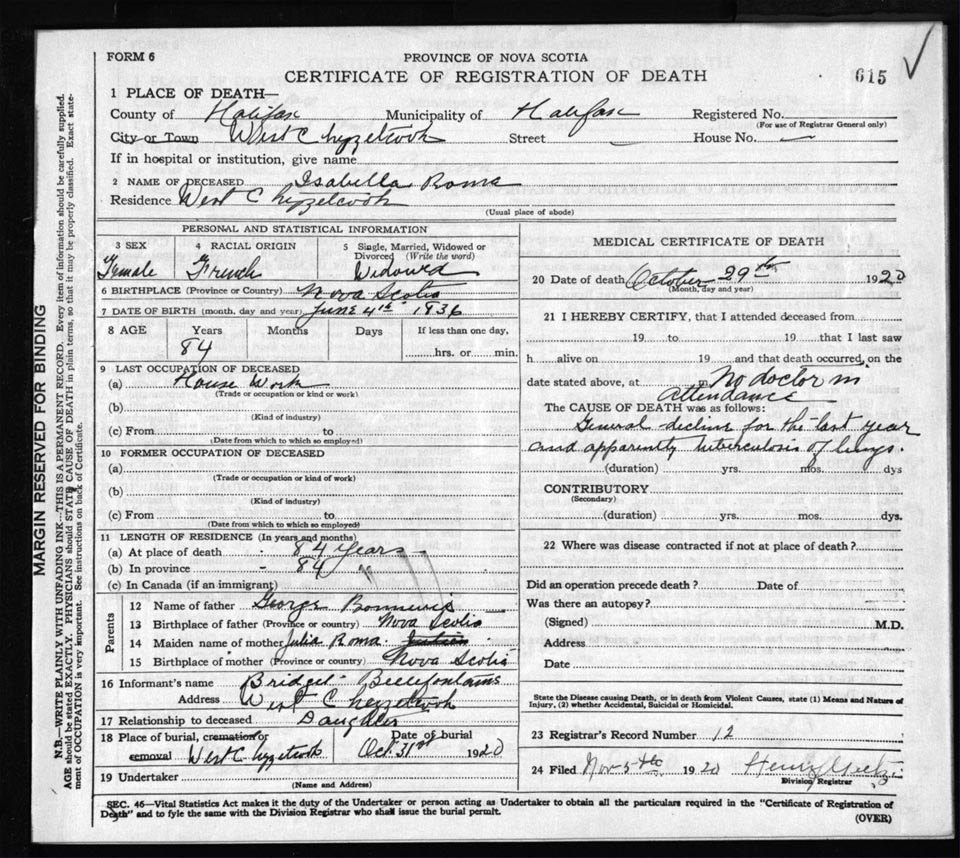 FORM 6
PROVINCE OF NOVA SCOTIA
CERTIFICATE OF REGISTRATION OF DEATH
615
1 PLACE OF DEATH—
County of Halifax Municipality of Halifax Registered No.
(For use of Registrar General only)
City or Town West Chyzelcook Street House No.
If in hospital or institution, give name
2 NAME OF DECEASED Isabella Roma
Residence West Chyzelcook
(Usual place of abode)
PERSONAL AND STATISTICAL INFORMATION
3 SEX
Female
4 RACIAL ORIGIN
French
5 Single, Married, Widowed or Divorced (Write the word)
Widowed
6 BIRTHPLACE (Province or Country) Nova Scotia
7 DATE OF BIRTH (month, day and year) June 4th 1836
8 AGE Years Months Days If less than one day,
84 hrs. or min.
9 LAST OCCUPATION OF DECEASED
(a) House Work
(Trade or occupation or kind or work)
(b)
(Kind of industry)
(c) From to
(Date from which to which so employed)
10 FORMER OCCUPATION OF DECEASED
(a)
(Trade or occupation or kind of work)
(b)
(Kind of industry)
(c) From to
(Date from which to which so employed)
11 LENGTH OF RESIDENCE (In years and months)
(a) At place of death - 84 years
(b) In province - 84 "
(c) In Canada (if an immigrant)
Parents
12 Name of father George
13 Birthplace of father (Province or country) Nova Scotia
14 Maiden name of mother Julia Roma
15 Birthplace of mother (Province or country) Nova Scotia
16 Informant's name Bridget Bellefontaine
Address West Chezzelcook
17 Relationship to deceased Daughter
18 Place of burial, cremation or removal West Chyzetcook
Date of burial
Oct. 31st 1920
19 Undertaker
(Name and Address)
MEDICAL CERTIFICATE OF DEATH
20 Date of death October 29th 1920
(Month, day and year)
21 I HEREBY CERTIFY, that I attended deceased from
19 to 19 that I last saw
h alive on 19 and that death occurred, on the
date stated above, at m No doctor in
attendance
The CAUSE OF DEATH was as follows:
General decline for the last year
and apparently tuberculosis of lungs.
(duration) yrs. mos. dys
CONTRIBUTORY
(Secondary)
(duration) yrs. mos. dys.
22 Where was disease contracted if not at place of death?
Did an operation precede death? Date of
Was there an autopsy?
(Signed) M.D.
Address
Date
State the Disease causing Death, or in death from Violent Causes, state (1) Means and Nature of
Injury, (2) whether Accidental, Suicidal or Homicidal.
23 Registrar's Record Number 12
24 Filed Nov 5th 1920 Henry
Division Registrar
SEC. 46—Vital Statistics Act makes it the duty of the Undertaker or person acting as Undertaker to obtain all the particulars required in the "Certificate of Registration of
Death" and to fyle the same with the Division Registrar who shall issue the burial permit.
(OVER)
MARGIN RESERVED FOR BINDING
N.B.—WRITE PLAINLY WITH UNFADING INK—THIS IS A PERMANENT RECORD. Every item of information should be carefully supplied.
AGE should be stated EXACTLY. PHYSICIANS should STATE CAUSE OF DEATH in plain terms, so that it may be properly classified. Exact state-
ment of OCCUPATION is very important. See instructions on back of Certificate.